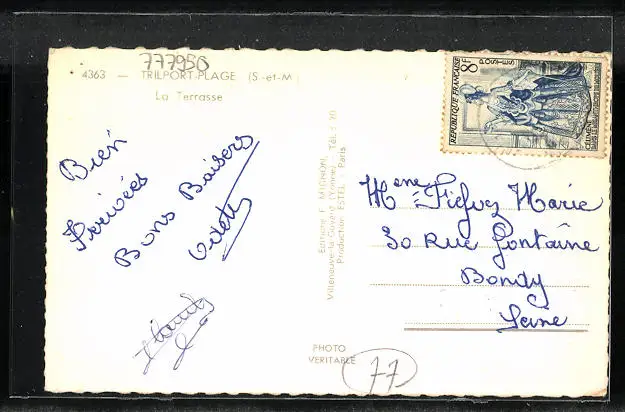 777956
4363 — TRILPORT-PLAGE (S.-et-M.)
La Terrasse
Bien
Arrivées
Bons Baisers
Odette
Editions F. MIGNON,
Villeneuve-la-Guyard (Yonne), Tél. : 20
Production ESTEL - Paris
PHOTO
VERITABLE
77
RÉPUBLIQUE FRANÇAISE
8F
POSTES
Mme Fiévez Marie
30 Rue Fontaine
Bondy
Seine